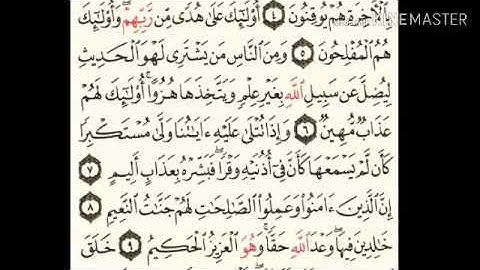 KINEMASTER
بِٱلْأَخِرَةِ هُمْ يُوقِنُونَ ٤ أُوْلَٰٓئِكَ عَلَىٰ هُدًى مِّن رَّبِّهِمْ ۖ وَأُوْلَٰٓئِكَ
هُمُ ٱلْمُفْلِحُونَ ٥ وَمِنَ ٱلنَّاسِ مَن يَشْتَرِى لَهْوَ ٱلْحَدِيثِ
لِيُضِلَّ عَن سَبِيلِ ٱللَّهِ بِغَيْرِ عِلْمٍ وَيَتَّخِذَهَا هُزُوًا ۚ أُوْلَٰٓئِكَ لَهُمْ
عَذَابٌ مُّهِينٌ ٦ وَإِذَا تُتْلَىٰ عَلَيْهِ ءَايَٰتُنَا وَلَّىٰ مُسْتَكْبِرًا
كَأَن لَّمْ يَسْمَعْهَا كَأَنَّ فِىٓ أُذُنَيْهِ وَقْرًا ۖ فَبَشِّرْهُ بِعَذَابٍ أَلِيمٍ ٧
إِنَّ ٱلَّذِينَ ءَامَنُوا۟ وَعَمِلُوا۟ ٱلصَّٰلِحَٰتِ لَهُمْ جَنَّٰتُ ٱلنَّعِيمِ ٨
خَٰلِدِينَ فِيهَا ۖ وَعْدَ ٱللَّهِ حَقًّا ۚ وَهُوَ ٱلْعَزِيزُ ٱلْحَكِيمُ ٩ خَلَقَ